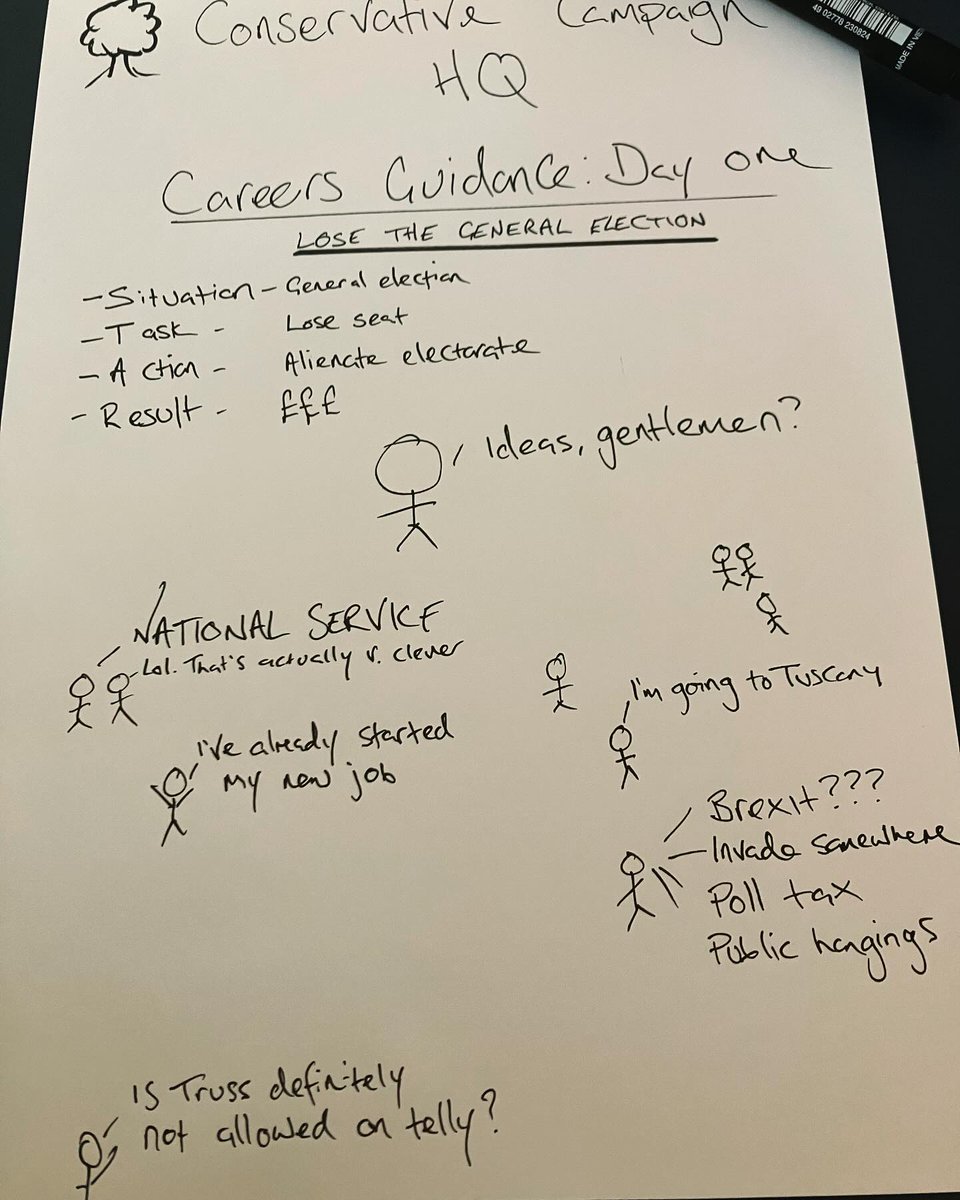 Conservative Campaign
HQ
49 02778 230824
MADE IN
Careers Guidance: Day one
LOSE THE GENERAL ELECTION
- Situation - General election
- Task - Lose seat
- Action - Alienate electorate
- Result - £££
Ideas, gentlemen?
NATIONAL SERVICE
Lol. That's actually v. clever
I've already started
my new job
I'm going to Tuscany
Brexit???
Invade somewhere
Poll tax
Public hangings
Is Truss definitely
not allowed on telly?